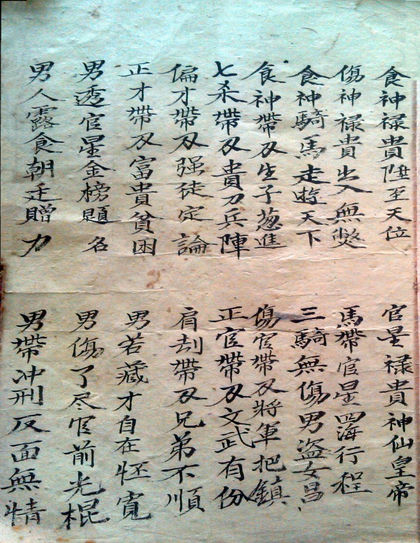 食神禄貴陞至天位
官星禄貴神仙皇帝
傷神禄貴出入無獘
馬帶官星四海行程
食神騎馬走遊天下
三騎無傷男盗女昌
食神帶刄生子進
傷官帶刄將軍把鎮
七杀帶刄貴刀兵陣
正官帶刄文武有份
偏才帶刄强徒定論
肩刦帶刄兄弟不順
正才帶刄富貴貧困
男若藏才自在寬
男透官星金榜題名
男傷了尽官前光棍
男人露食朝廷贈力
男帶冲刑反面無情